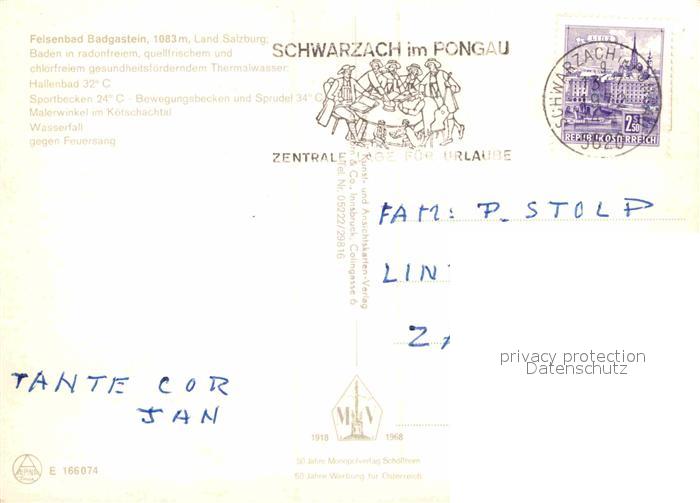 Felsenbad Badgastein, 1083 m, Land Salzburg;
Baden in radonfreiem, quellfrischem und
chlorfreiem gesundheitsförderndem Thermalwasser:
Hallenbad 32° C
Sportbecken 24° C - Bewegungsbecken und Sprudel 34° C
Malerwinkel im Kötschachtal
Wasserfall
gegen Feuersang
SCHWARZACH im PONGAU
ZENTRALE FÜR URLAUBE
LINZ
SCHWARZACH
2.50
REPUBLIK ÖSTERREICH
Kunst- und Ansichtskarten-Verlag
& Co., Innsbruck, Colingasse 6
Tel. Nr. 05222/29816
FAM: P. STOLP
LIN
Z
privacy protection
Datenschutz
TANTE COR
JAN
M V
1918 1968
50 Jahre Monopolverlag Schöllhorn
50 Jahre Werbung für Österreich
E 166074